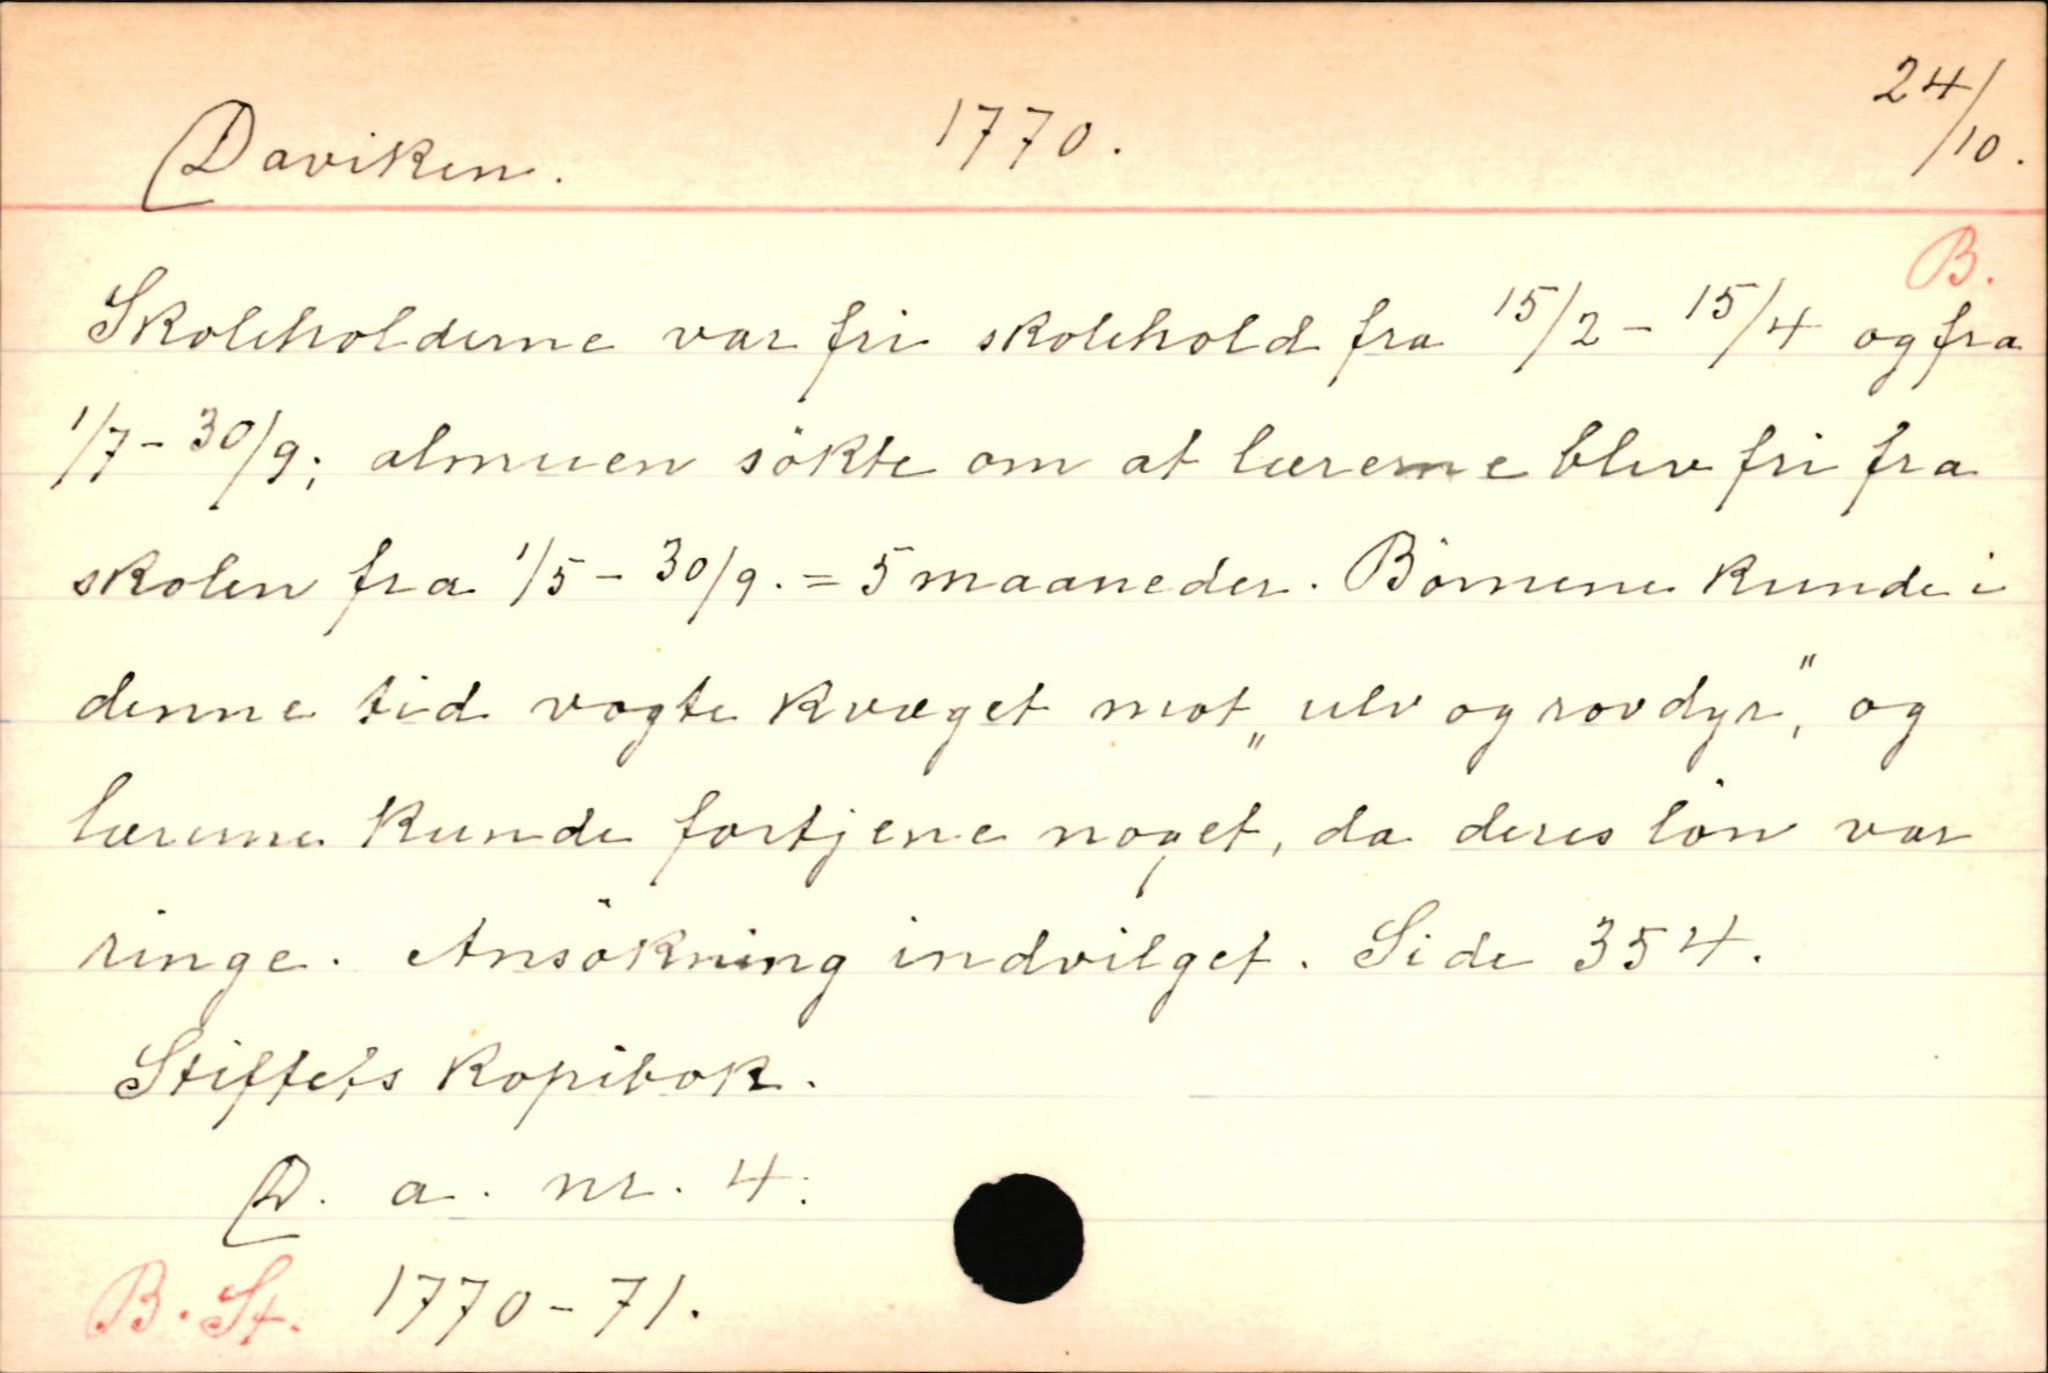 Daviken. 1770. 24/10.
B.
Skoleholderne var fri skolehold fra 15/2 - 15/4 og fra
1/7 - 30/9; almuen sökte om at lærerne blev fri fra
skolen fra 1/5 - 30/9. = 5 maaneder. Börnene kunde i
denne tid vogte kvæget mot „ulv og rovdyr”, og
lærerne kunde fortjene noget, da deres lön var
ringe. Ansökning indvilget. Side 354.
Stiftets kopibok.
D. a. nr. 4.
B. St. 1770-71.